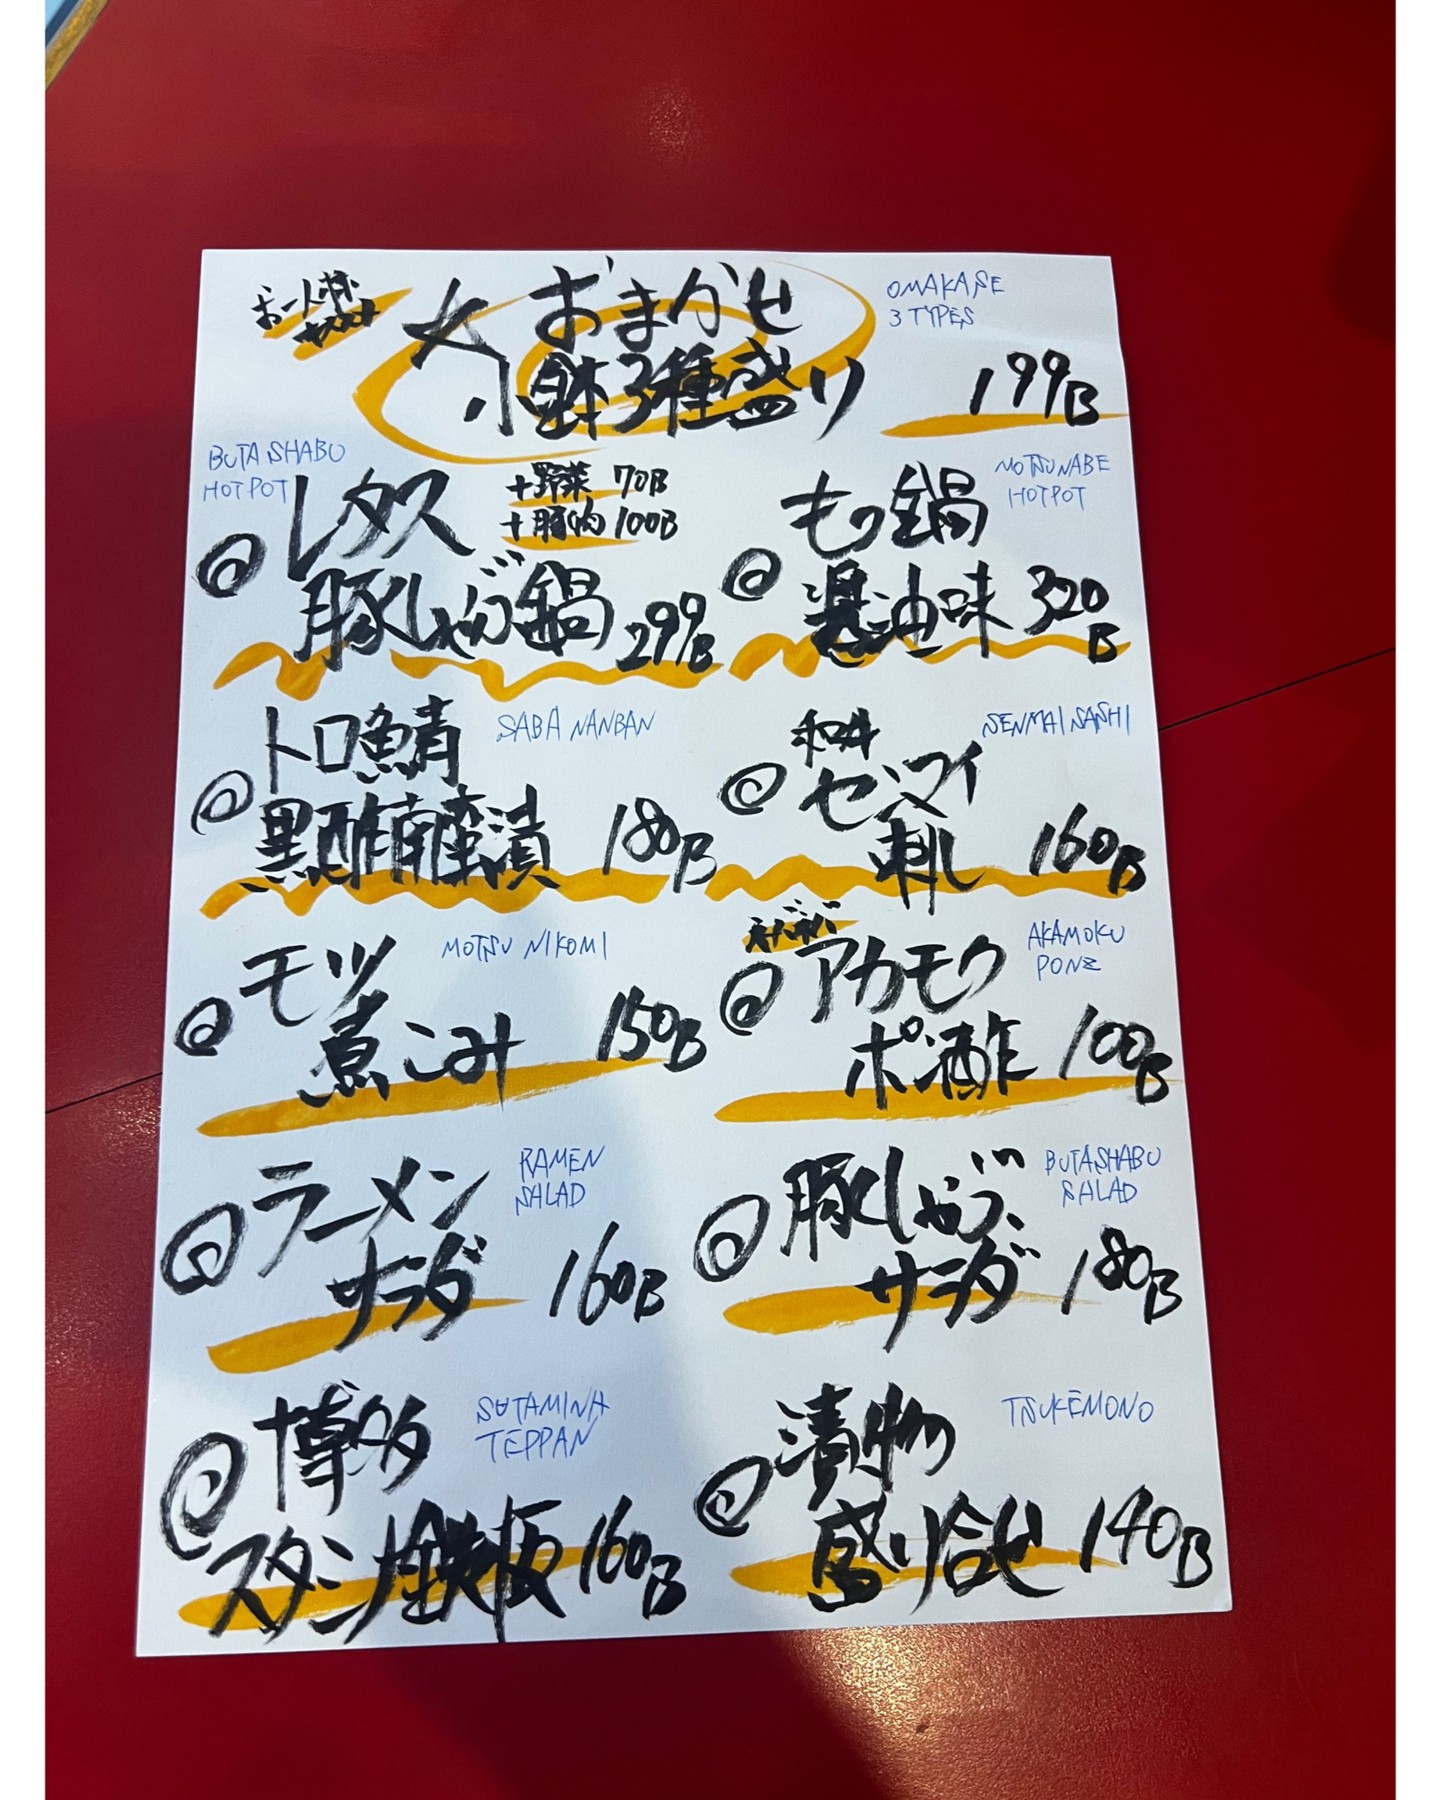 お一人様
おまかせ
小鉢3種盛り
OMAKASE
3 TYPES
199B
BUTA SHABU
HOT POT
レタス
豚しゃぶ鍋
+野菜 70B
+豚肉 100B
299B
MOTSUNABE
HOTPOT
もつ鍋
醤油味
320
B
トロ鯖
SABA NANBAN
黒酢南蛮漬
180B
SENMAI SASHI
和牛
センマイ
刺し
160B
モツ
MOTSU NIKOMI
煮こみ
150B
ネバネバ
アカモク
AKAMOKU
PONZ
ポン酢
100B
ラーメン
RAMEN
SALAD
サラダ
160B
豚しゃぶ
BUTASHABU
SALAD
サラダ
180B
博多
SUTAMINA
TEPPAN
スタミナ鉄板
160B
漬物
TSUKEMONO
盛り合せ
140B